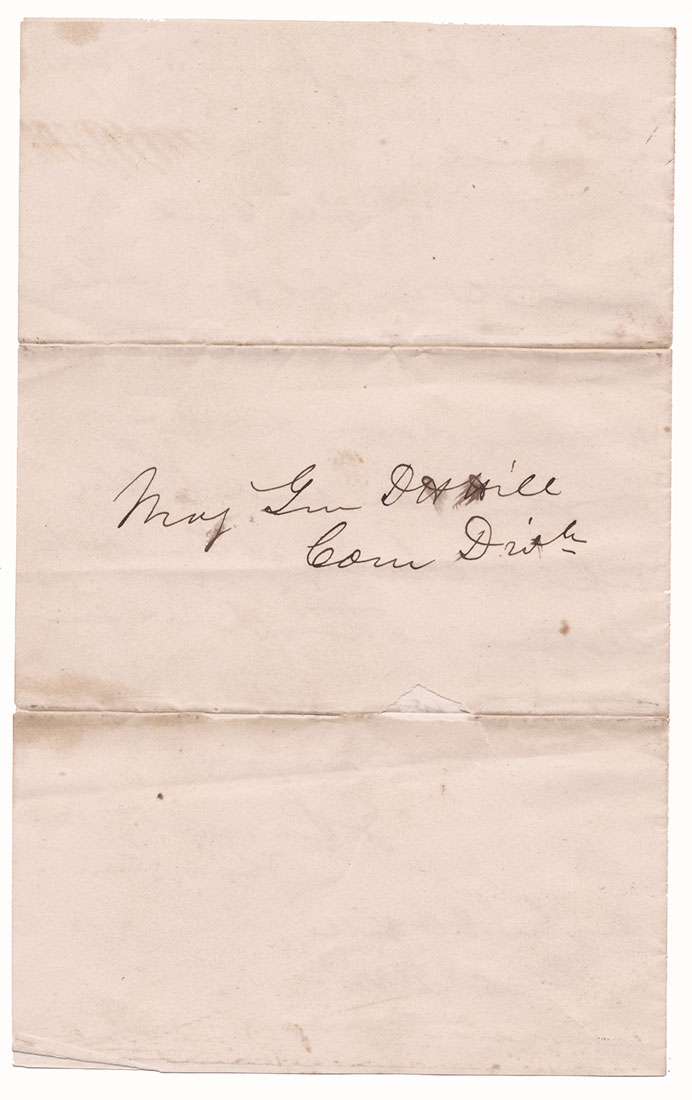 Maj Gen D H Hill
Com Divn